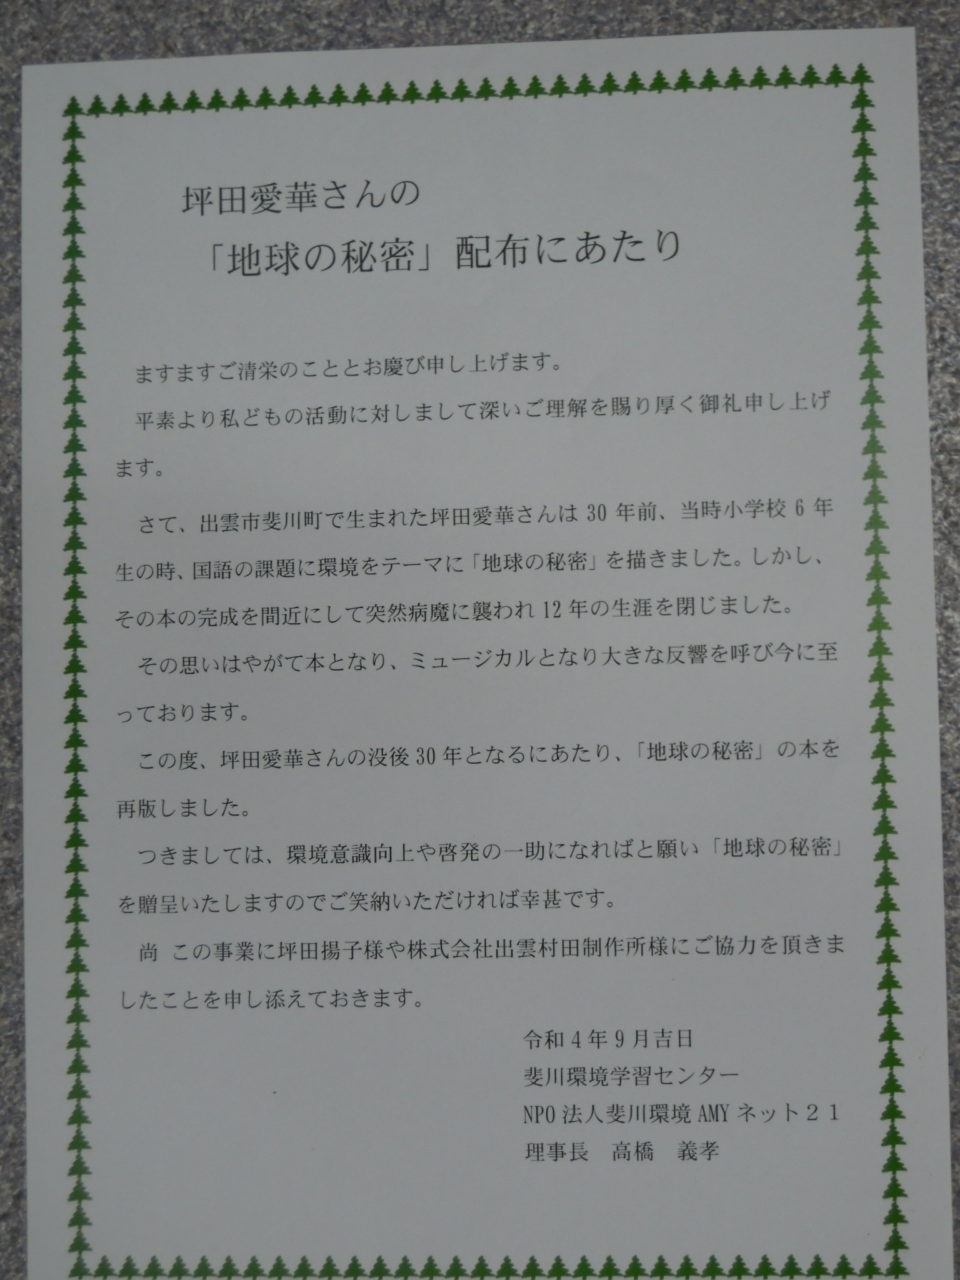 坪田愛華さんの
「地球の秘密」配布にあたり
ますますご清栄のこととお慶び申し上げます。
平素より私どもの活動に対しまして深いご理解を賜り厚く御礼申し上げ
ます。
さて、出雲市斐川町で生まれた坪田愛華さんは 30 年前、当時小学校 6 年
生の時、国語の課題に環境をテーマに「地球の秘密」を描きました。しかし、
その本の完成を間近にして突然病魔に襲われ 12 年の生涯を閉じました。
その思いはやがて本となり、ミュージカルとなり大きな反響を呼び今に至
っております。
この度、坪田愛華さんの没後 30 年となるにあたり、「地球の秘密」の本を
再版しました。
つきましては、環境意識向上や啓発の一助になればと願い「地球の秘密」
を贈呈いたしますのでご笑納いただければ幸甚です。
尚 この事業に坪田揚子様や株式会社出雲村田製作所様にご協力を頂きま
したことを申し添えておきます。
令和 4 年 9 月吉日
斐川環境学習センター
NPO 法人斐川環境 AMY ネット２１
理事長　高橋　義孝